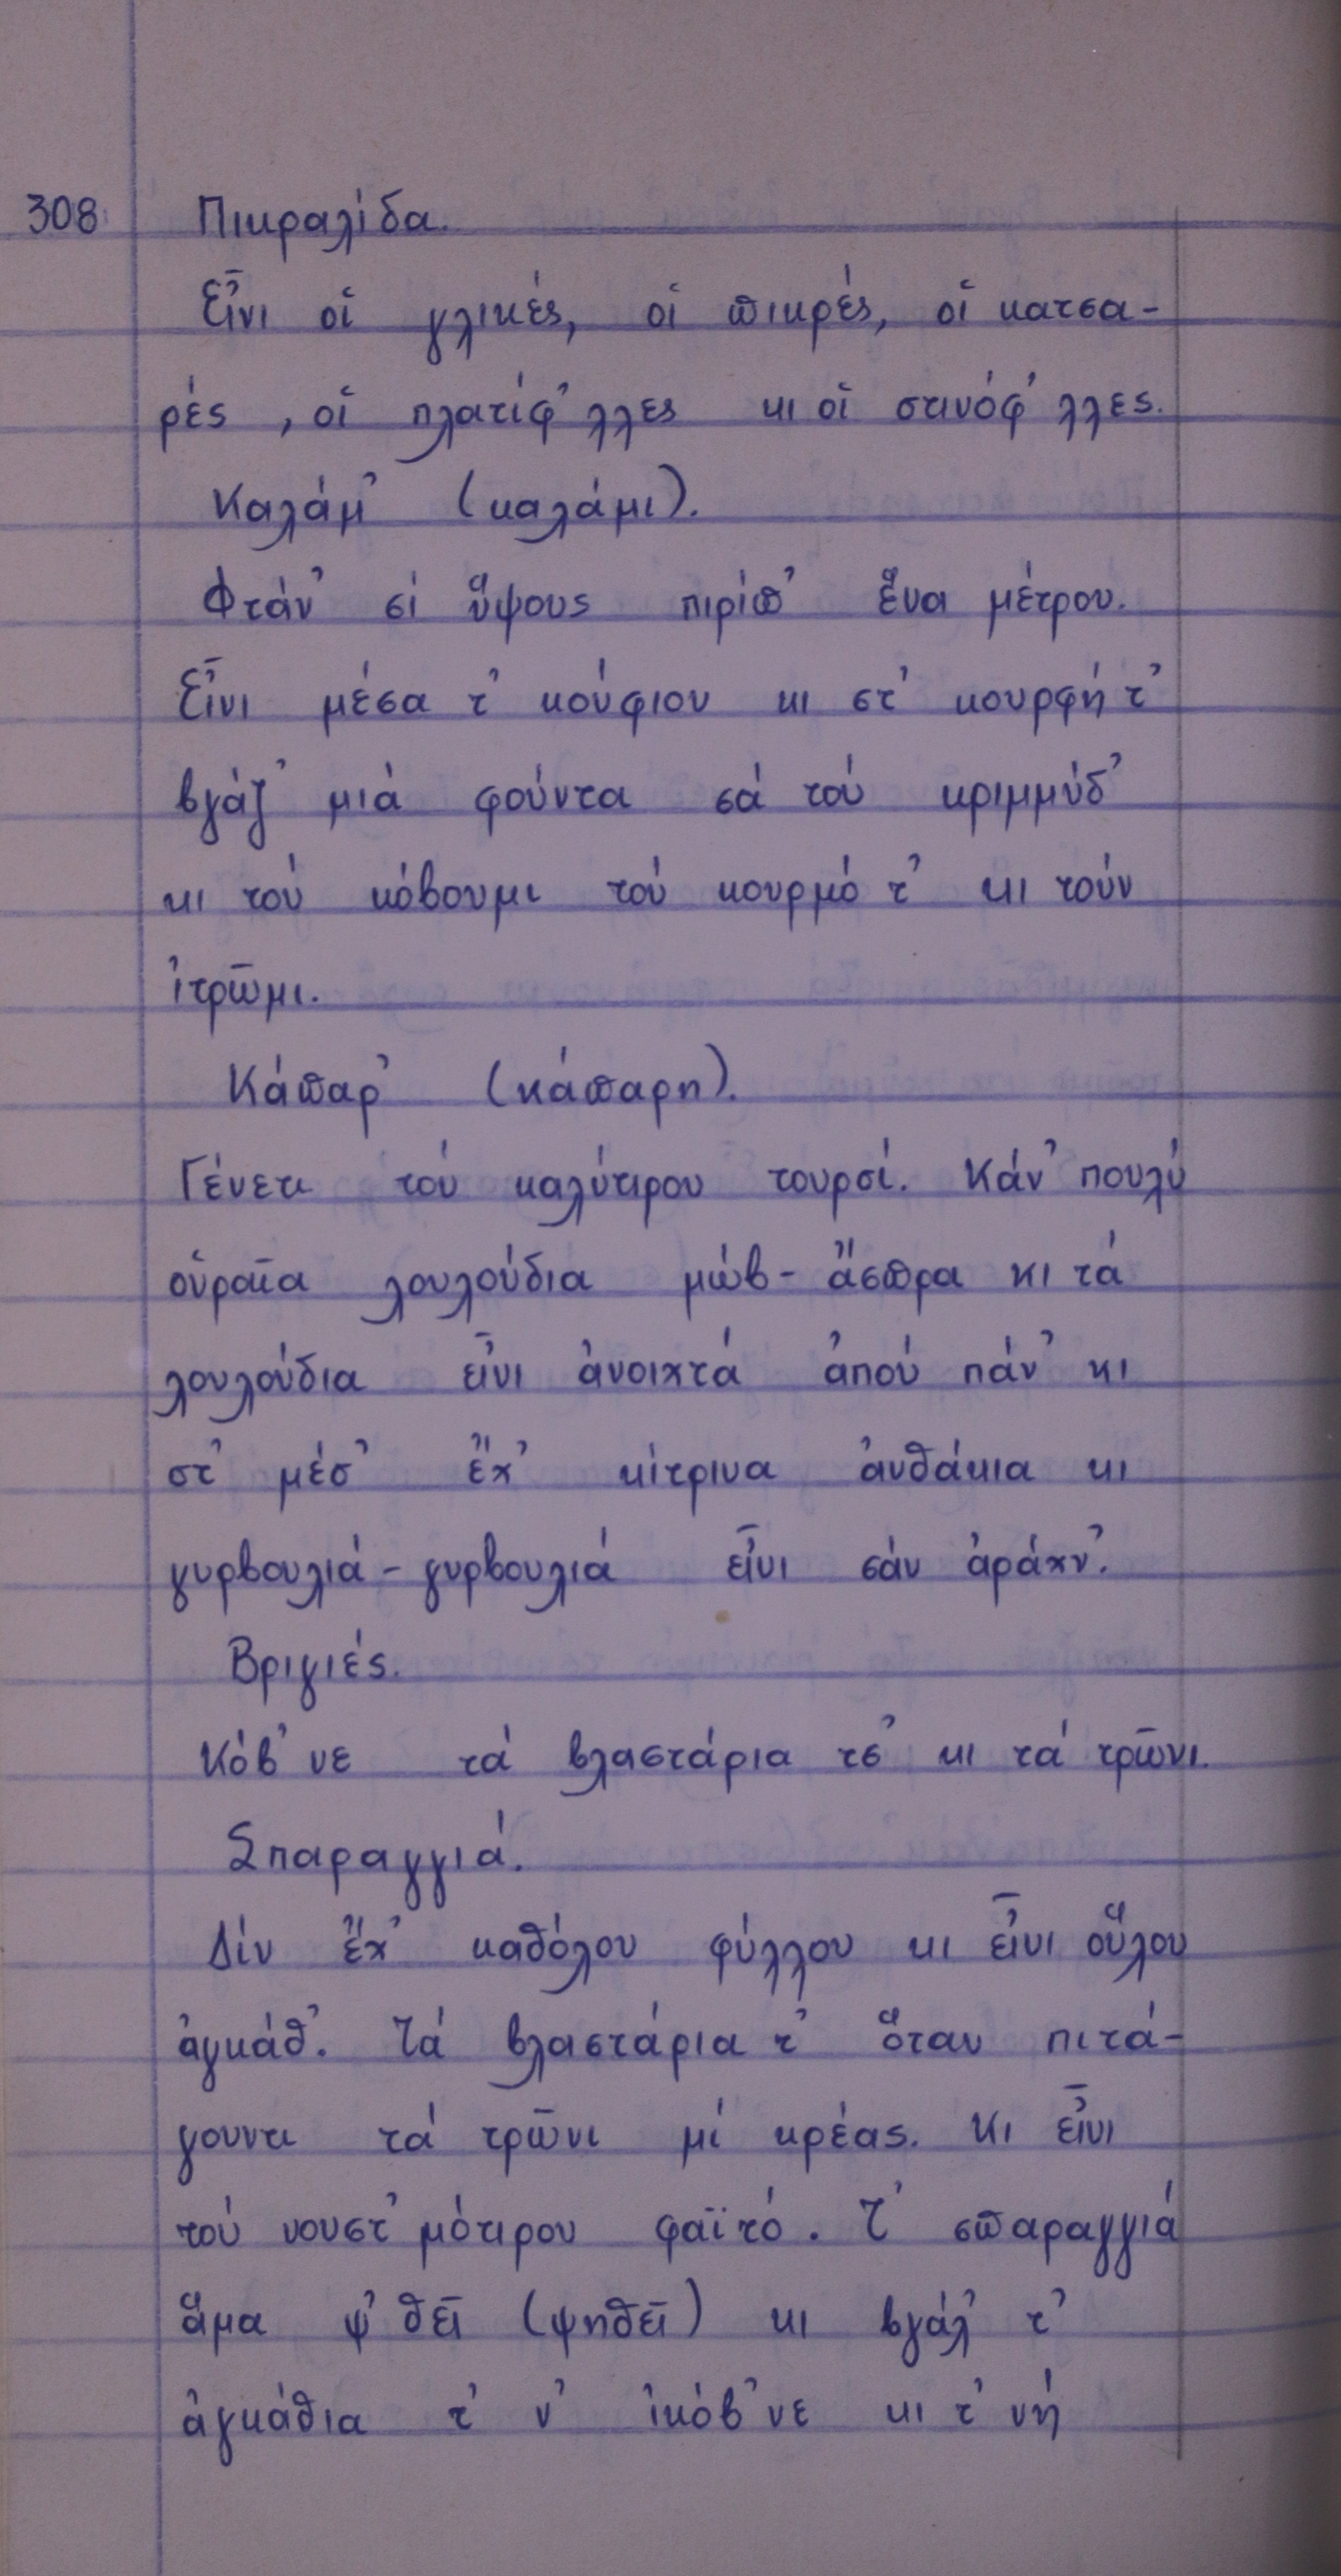 308 Πικραλίδα.
Εἶνι οἱ γλικές, οἱ πικρές, οἱ κατσα-
ρές, οἱ πλατίφ'λλες κι οἱ στινόφ'λλες.
Καλάμ' (καλάμι).
Φτάν' σί ὕψους πιρίπ' ἕνα μέτρου.
Εἶνι μέσα τ' κούφιου κι στ' κουρφή τ'
βγάζ' μιά φούντα σά τού κριμμύδ'
κι τού κόβουμι τού κουρμό τ' κι τούν
ἰτρῶμι.
Κάπαρ' (κάπαρη).
Γένετι τού καλύτιρου τουρσί. Κάν' πουλύ
οὑραῖα λουλούδια μώβ-ἄσπρα κι τά
λουλούδια εἶνι ἀνοιχτά ἀπού πάν' κι
στ' μέσ' ἔχ' κίτρινα ἀνθάκια κι
γυρβουλιά-γυρβουλιά εἶνι σάν ἀράχν'.
Βριγιές.
Κόβ'νε τά βλαστάρια τσ' κι τά τρῶνι.
Σπαραγγιά.
Δίν ἔχ' καθόλου φύλλου κι εἶνι οὕλου
ἀγκάθ'. Τά βλαστάρια τ' ὅταν πιτά-
γουντι τά τρῶνι μί κρέας. Κι εἶνι
τού νουστ'μότιρου φαϊτό. Τ' σπαραγγιά
ἅμα ψ'θεῖ (ψηθεῖ) κι βγάλ' τ'
ἀγκάθια τ' ν' ἰκόβ'νε κι τ' νή